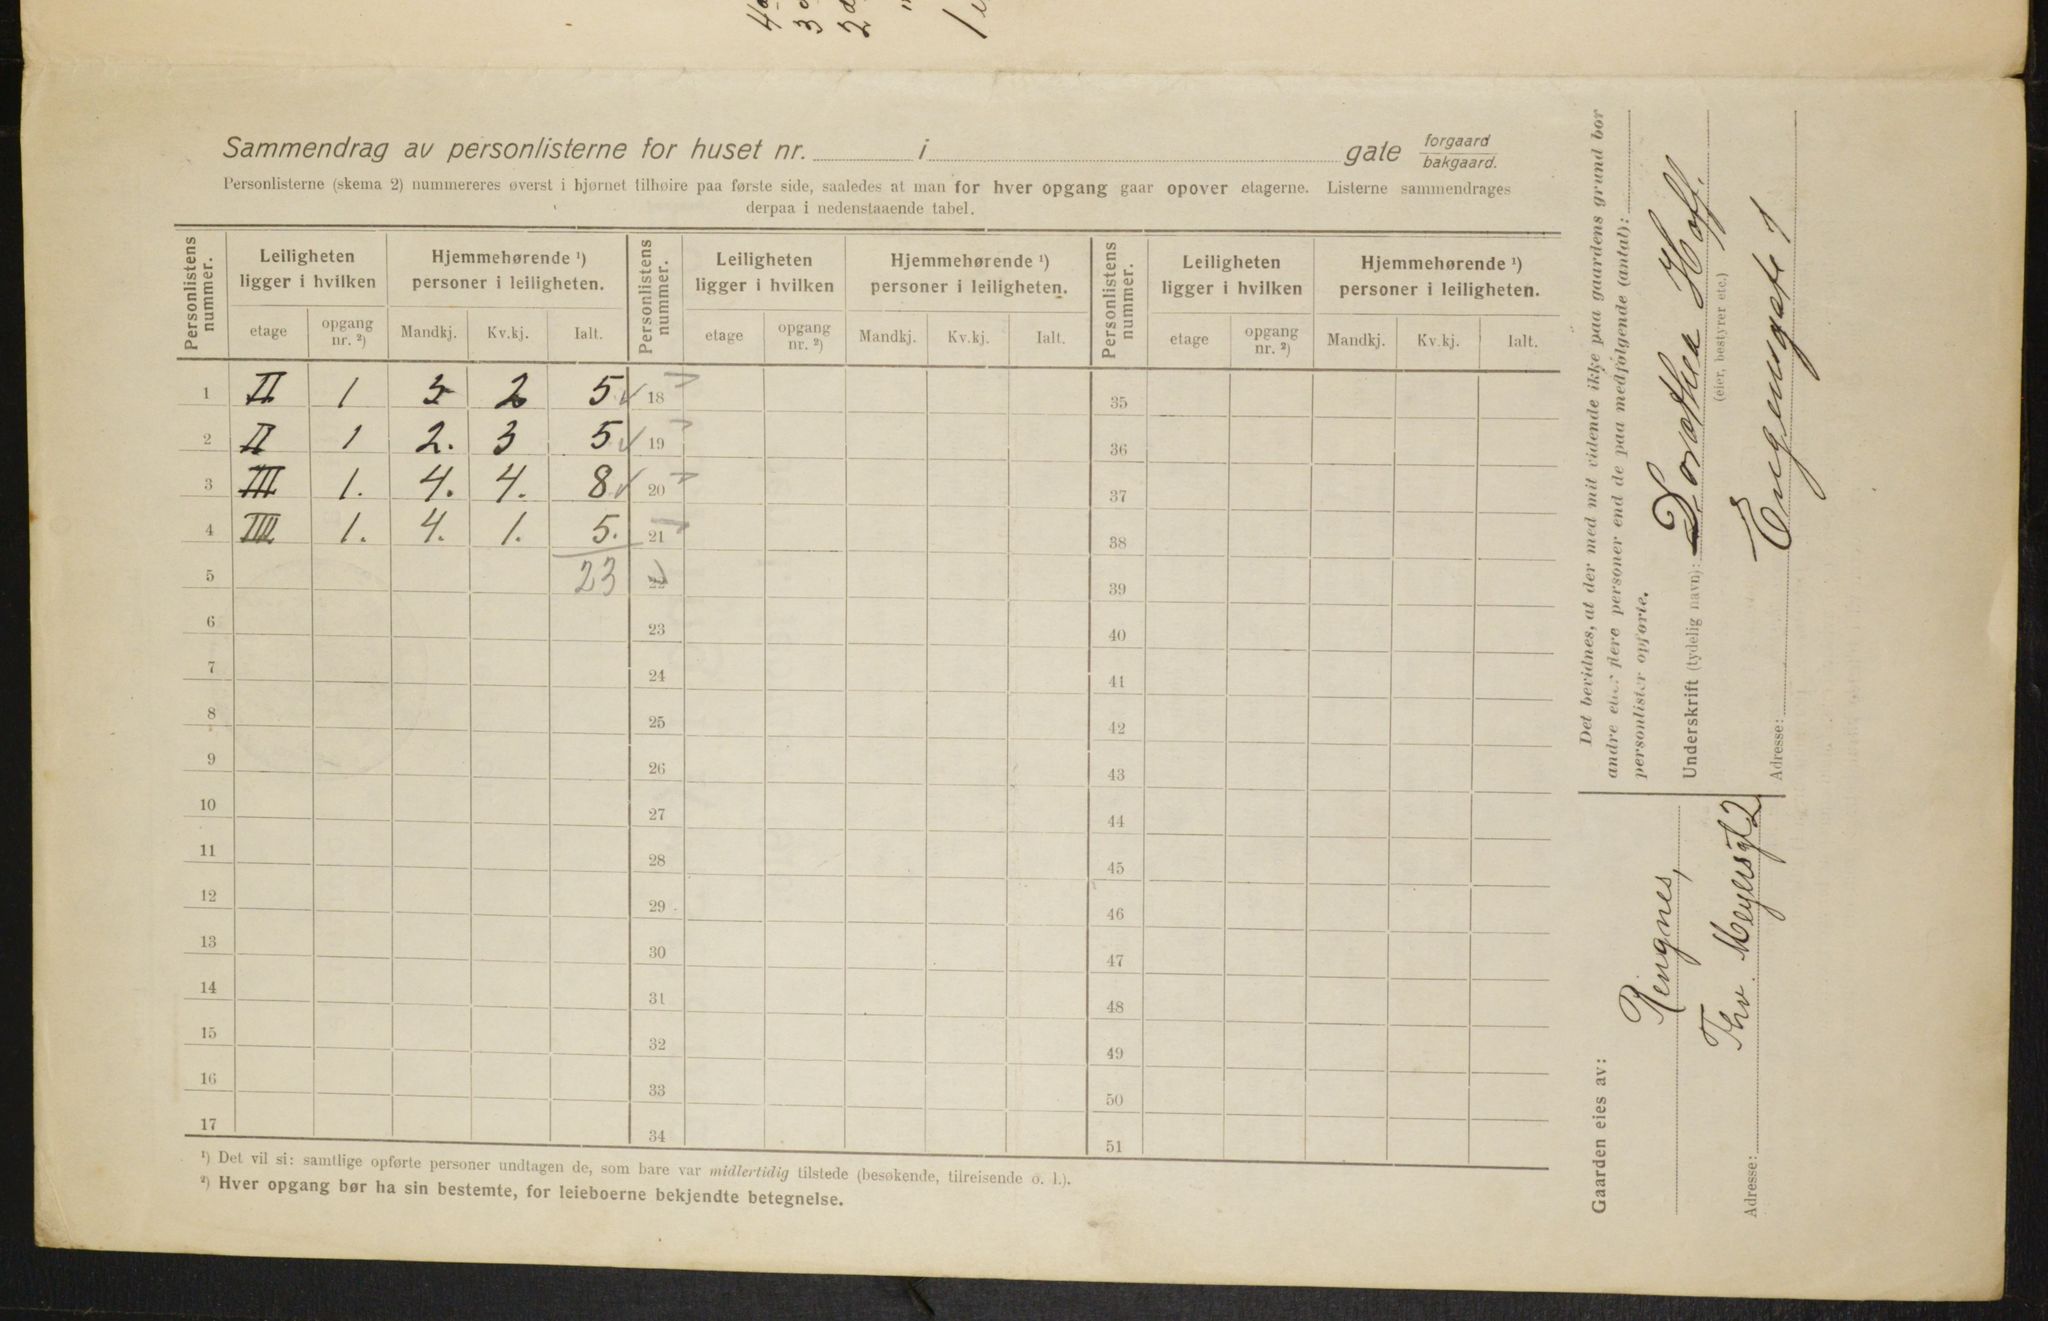 Sammendrag av personlisterne for huset nr. i gate forgaard bakgaard.
Personlisterne (skema 2) nummereres øverst i hjørnet tilhøire paa første side, saaledes at man for hver opgang gaar opover etagerne. Listerne sammendrages
derpaa i nedenstaaende tabel.
Personlistens nummer. Leiligheten ligger i hvilken Hjemmehørende ¹) personer i leiligheten. Personlistens nummer. Leiligheten ligger i hvilken Hjemmehørende ¹) personer i leiligheten. Personlistens nummer. Leiligheten ligger i hvilken Hjemmehørende ¹) personer i leiligheten.
etage opgang nr. ²) Mandkj. Kv.kj. Ialt. etage opgang nr. ²) Mandkj. Kv.kj. Ialt. etage opgang nr. ²) Mandkj. Kv.kj. Ialt.
1 II 1 3 2 5 18 35
2 II 1 2. 3 5 19 36
3 III 1. 4. 4. 8 20 37
4 IIII 1. 4. 1. 5. 21 38
5 23 22 39
6 23 40
7 24 41
8 25 42
9 26 43
10 27 44
11 28 45
12 29 46
13 30 47
14 31 48
15 32 49
16 33 50
17 34 51
¹) Det vil si: samtlige opførte personer undtagen de, som bare var midlertidig tilstede (besøkende, tilreisende o. l.).
²) Hver opgang bør ha sin bestemte, for leieboerne bekjendte betegnelse.
Det bevidnes, at der med mit vidende ikke paa gaardens grund bor
andre eller flere personer end de paa medfølgende (antal):
personlister opførte.
Underskrift (tydelig navn): Dorthea Hoff.
(eier, bestyrer etc.)
Adresse: Eugeniagate 1
Gaarden eies av: Ringnes,
Adresse: Thv. Meyersgt 2